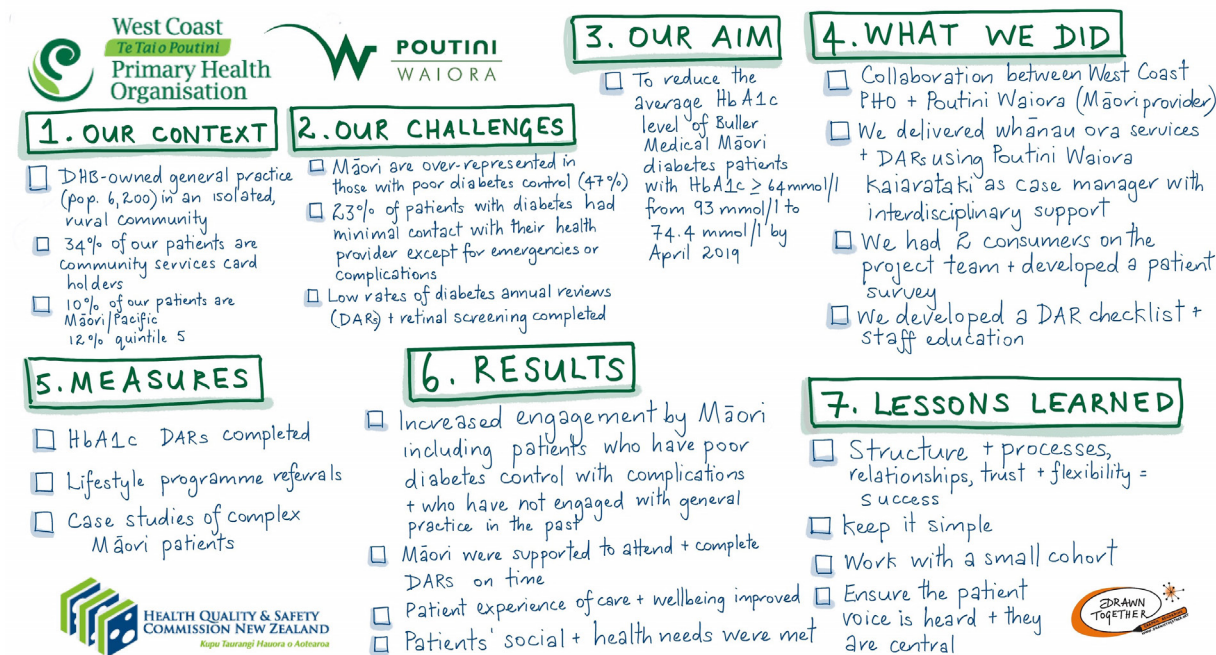 West Coast
Te Tai o Poutini
Primary Health
Organisation
POUTINI
WAIORA
1. OUR CONTEXT
DHB-owned general practice
(pop. 6,200) in an isolated,
rural community
34% of our patients are
community services card
holders
10% of our patients are
Māori/Pacific
12% quintile 5
2. OUR CHALLENGES
Māori are over-represented in
those with poor diabetes control (47%)
23% of patients with diabetes had
minimal contact with their health
provider except for emergencies or
complications
Low rates of diabetes annual reviews
(DARs) + retinal screening completed
3. OUR AIM
To reduce the
average HbA1c
level of Buller
Medical Māori
diabetes patients
with HbA1c ≥ 64mmol/l
from 93 mmol/l to
74.4 mmol/l by
April 2019
4. WHAT WE DID
Collaboration between West Coast
PHO + Poutini Waiora (Māori provider)
We delivered whānau ora services
+ DARs using Poutini Waiora
kaiarataki as case manager with
interdisciplinary support
We had 2 consumers on the
project team + developed a patient
survey
We developed a DAR checklist +
staff education
5. MEASURES
HbA1c DARs completed
Lifestyle programme referrals
Case studies of complex
Māori patients
6. RESULTS
Increased engagement by Māori
including patients who have poor
diabetes control with complications
+ who have not engaged with general
practice in the past
Māori were supported to attend + complete
DARs on time
Patient experience of care + wellbeing improved
Patients' social + health needs were met
7. LESSONS LEARNED
Structure + processes,
relationships, trust + flexibility =
success
keep it simple
Work with a small cohort
Ensure the patient
voice is heard + they
are central
HEALTH QUALITY & SAFETY
COMMISSION NEW ZEALAND
Kupu Taurangi Hauora o Aotearoa
DRAWN
TOGETHER